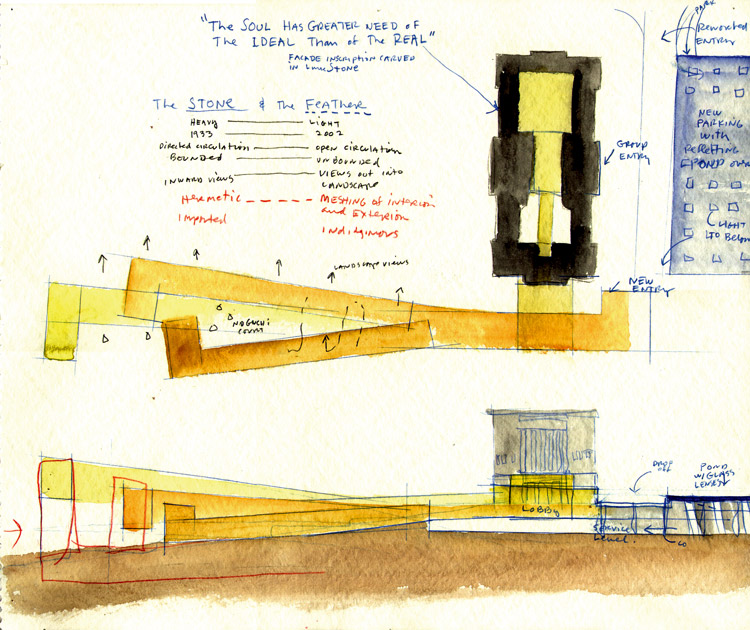 "The SOUL HAS GREATER NEED OF
The IDEAL Than of The REAL"
FACADE INSCRIPTION CARVED
IN LIMESTONE
The STONE & The FEATHER
HEAVY LIGHT
1933 2002
Directed circulation OPEN CIRCULATION
BOUNDED UNBOUNDED
INWARD VIEWS VIEWS OUT INTO
LANDSCAPE
HERMETIC MESHING OF INTERIOR
and EXTERIOR
Imported INDIGINOUS
PARK
ENTRY
NEW
PARKING
WITH
POND OVER
LIGHT
TO BELOW
GROUP
ENTRY
NEW
ENTRY
LANDSCAPE VIEWS
NOGUCHI
COURT
DROP
OFF
POND
W/GLASS
LENSES
LOBBY
SERVICE
LEVEL